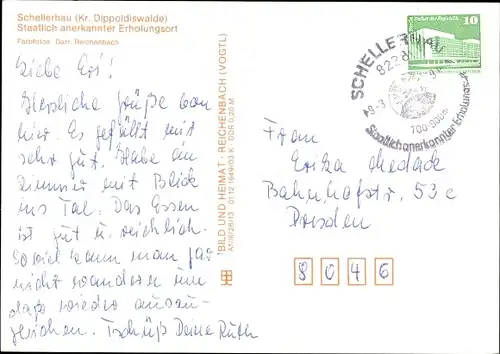 Schellerhau (Kr. Dippoldiswalde)
Staatlich anerkannter Erholungsort
Farbfotos: Darr, Reichenbach
Liebe Eri!
Herzliche Grüße von
hier. Es gefällt mir
sehr gut. Habe ein
Zimmer mit Blick
ins Tal. Das Essen
ist gut u. reichlich.
So viel kann man gar
nicht wandern um
das wieder auszu-
gleichen. Tschüß Deine Ruth
BILD UND HEIMAT · REICHENBACH (VOGTL)
SCHELLERHAU
Staatlich anerkannter Erholungsort
10
Frau
Erika
Bahnhofstr. 53 c
Dresden
8 0 4 6